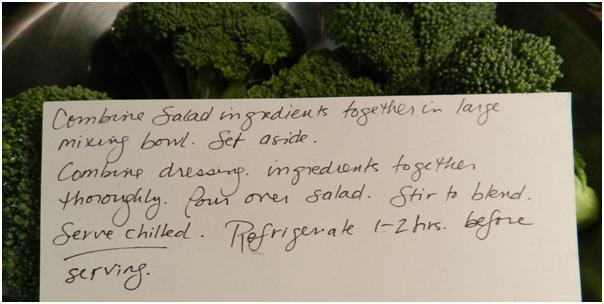 Combine Salad ingredients together in large
mixing bowl. Set aside.
Combine dressing. ingredients together
thoroughly. Pour over salad. Stir to blend.
Serve chilled. Refrigerate 1-2 hrs. before
serving.